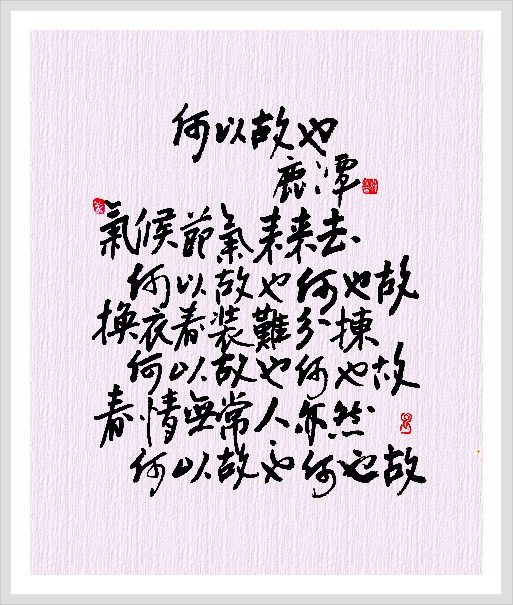 何以故也
鹿潭
氣候節氣来来去
何以故也何也故
換衣春装難分揀
何以故也何也故
春情無常人亦然
何以故也何也故